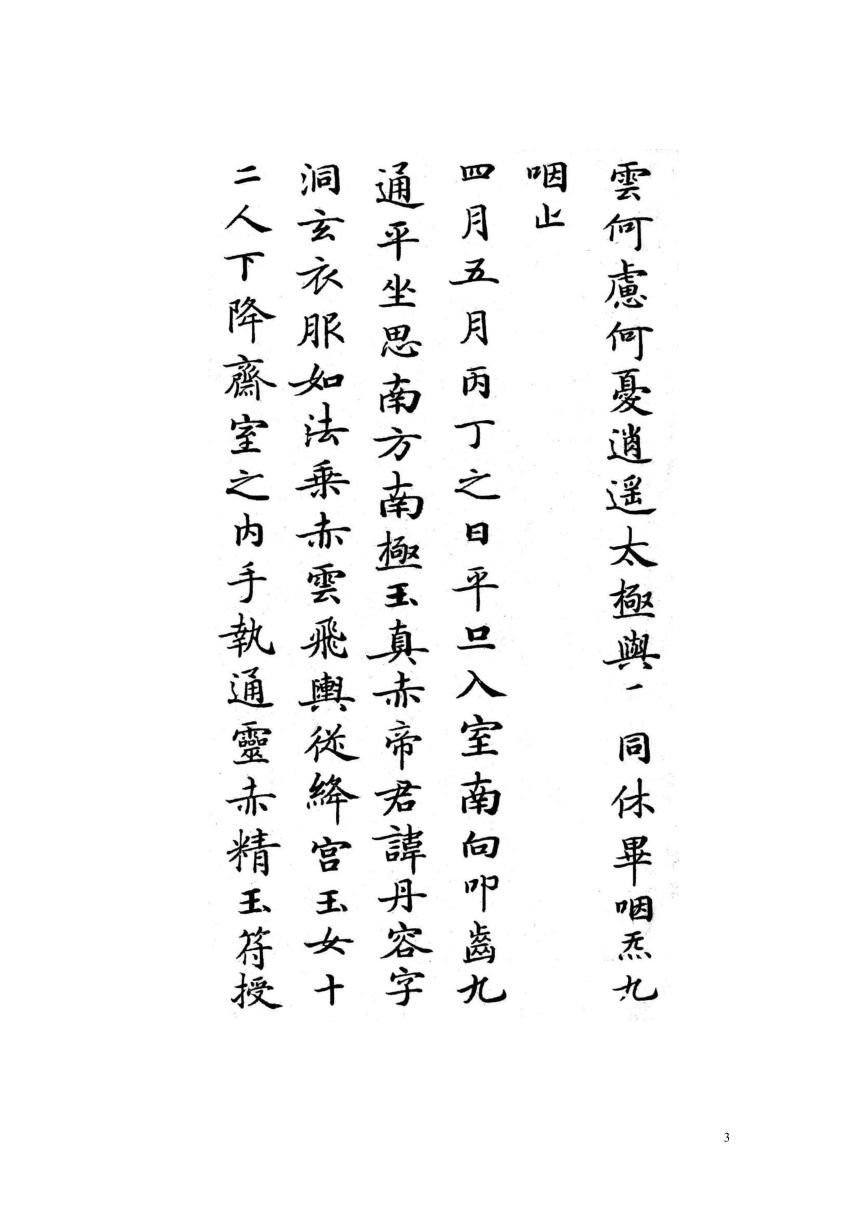 雲何慮何憂逍遥太極與一同休畢咽炁九
咽止
四月五月丙丁之日平旦入室南向叩齒九
通平坐思南方南極玉真赤帝君諱丹容字
洞玄衣服如法乗赤雲飛輿從絳宫玉女十
二人下降齋室之内手執通靈赤精玉符授
3